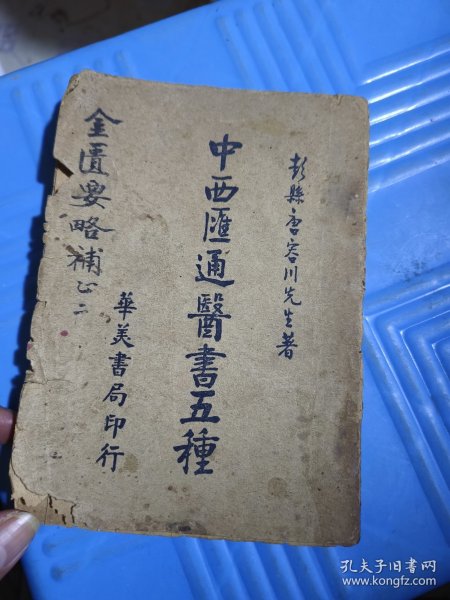 彭縣唐容川先生著
中西匯通醫書五種
華美書局印行
金匱要略補正二
孔夫子旧书网
www.kongfz.com